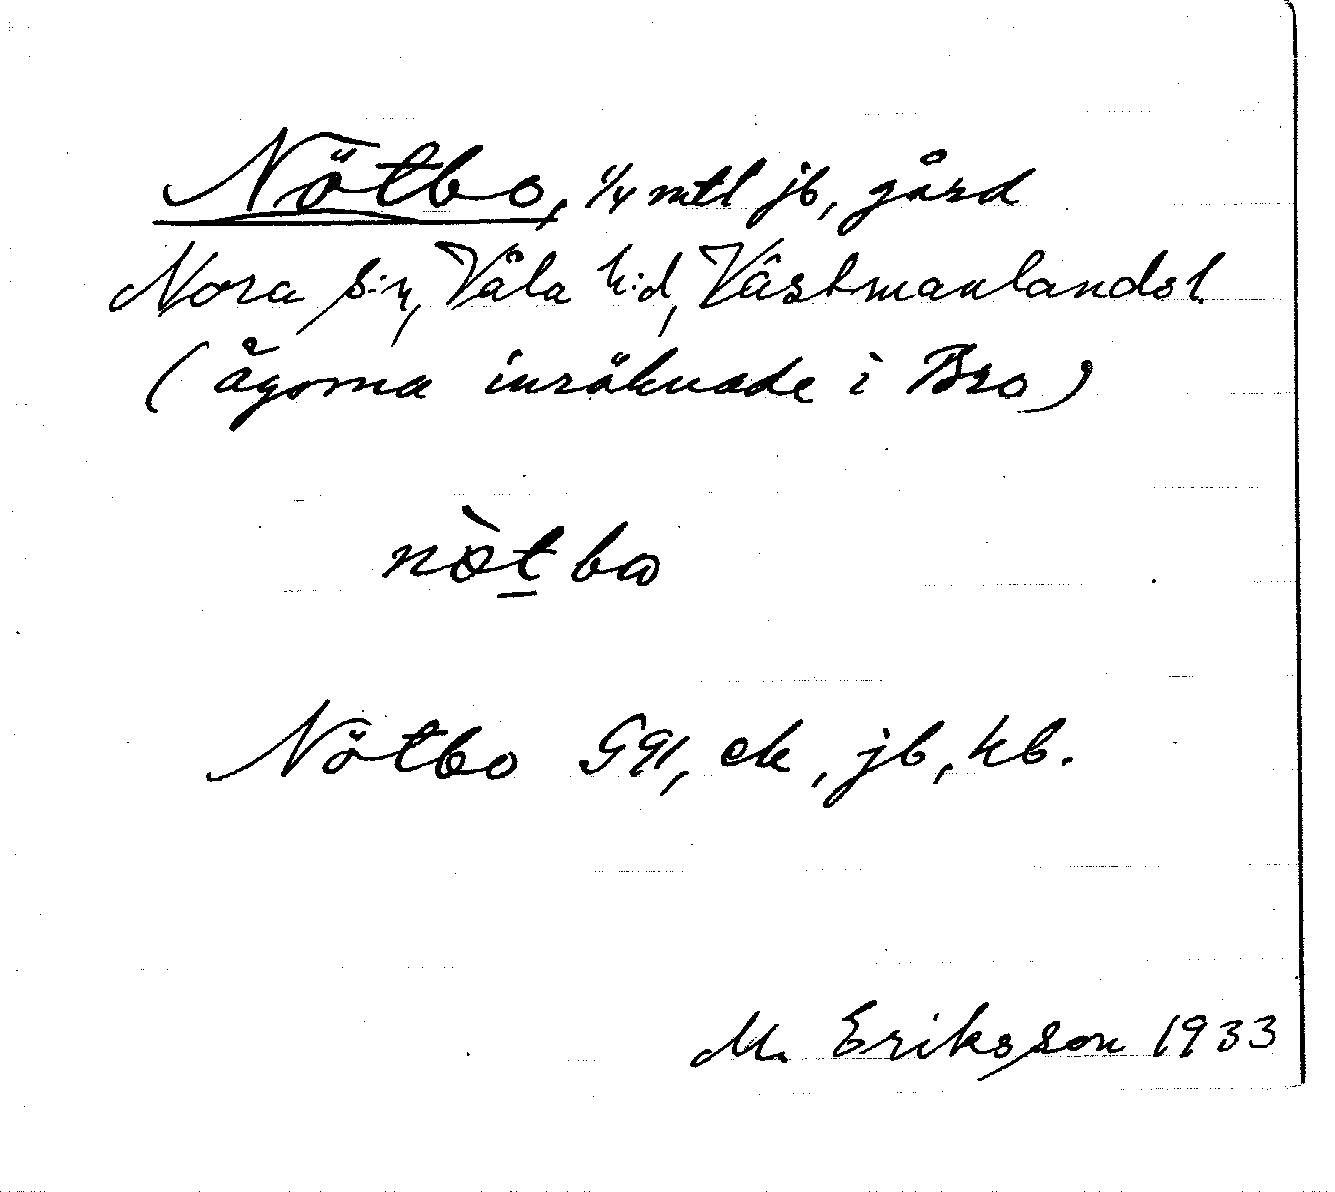 Nötbo, 1/4 mtl jb, gård
Nora s:n, Våla h:d, Västmanlands l
(ägorna inräknade i Bro)
nø̀t̲bω
Nötbo GÄ, ek, jb, kb.
M. Eriksson 1933